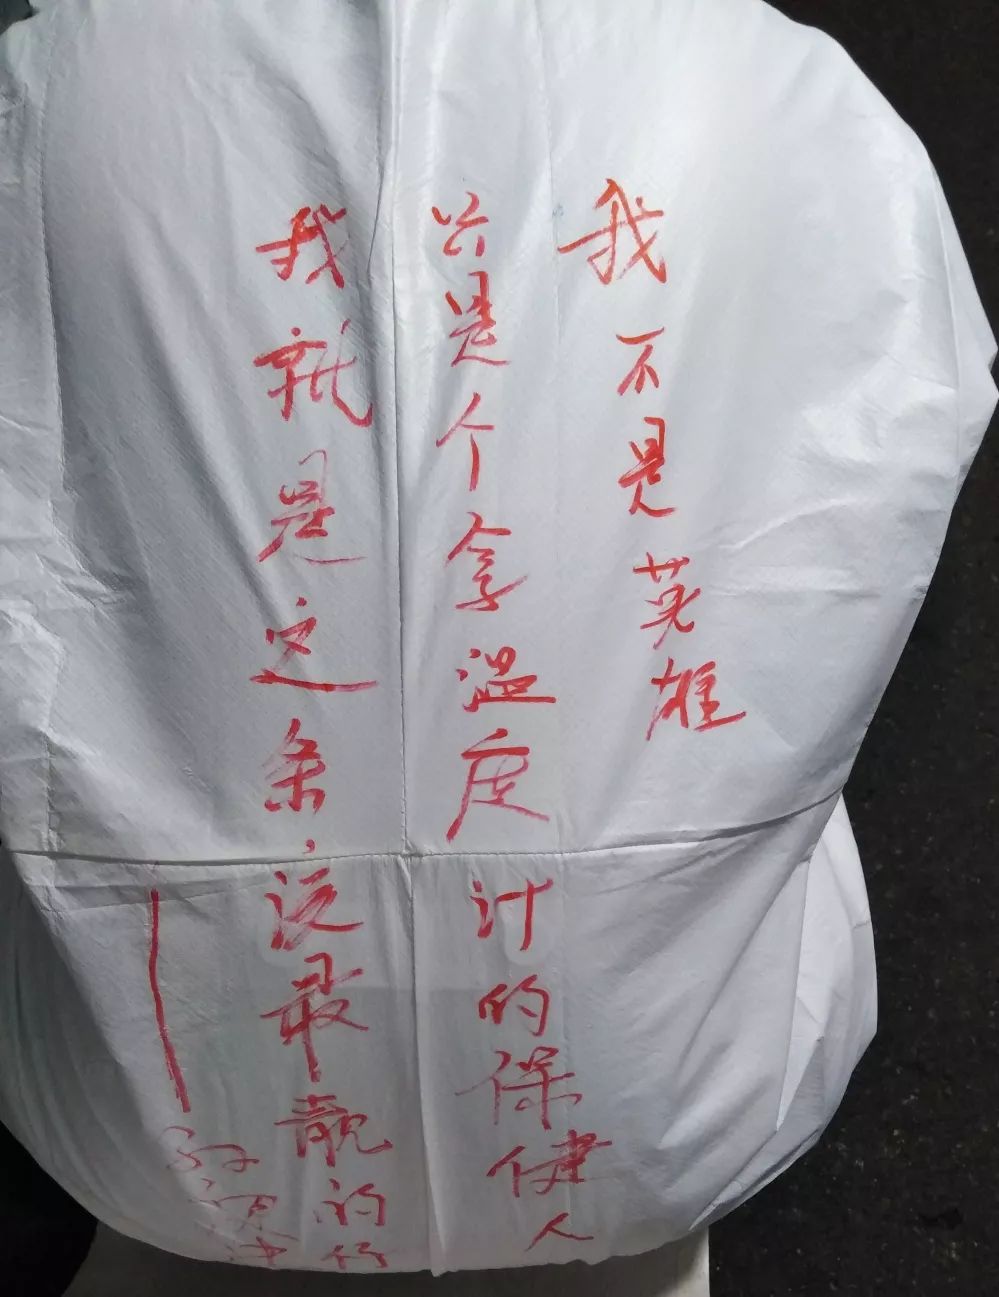 我不是英雄
只是个拿温度计的保健人
我就是这条街最靓的仔